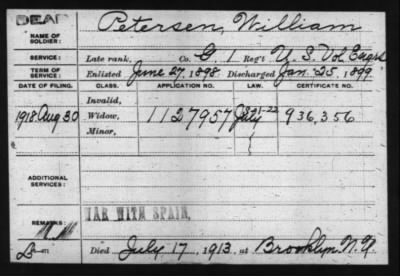 DEAD
NAME OF SOLDIER: Petersen, William
SERVICE: Late rank, Co. G 1 Reg't U. S. Vol. Engrs
TERM OF SERVICE: Enlisted June 27, 1898. Discharged Jan. 25, 1899.
DATE OF FILING. CLASS. APPLICATION NO. LAW. CERTIFICATE NO.
Invalid,
1918 Aug 30 Widow, 1127957 July 936,356
Minor,
ADDITIONAL SERVICES:
WAR WITH SPAIN.
REMARKS:
Died July 17, 1913, at Brooklyn N.Y.